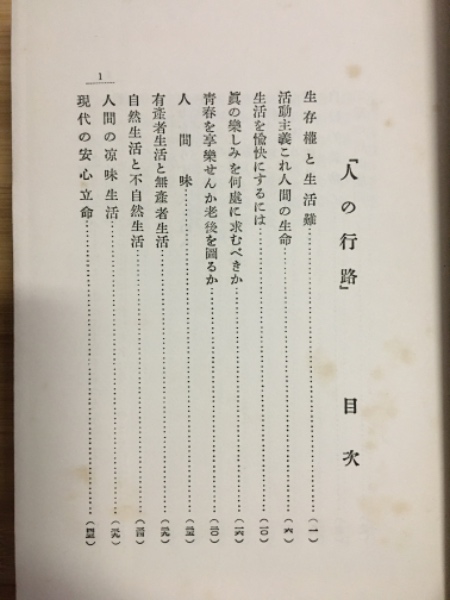 『人の行路』 目次
生存權と生活難…………(一)
活動主義これ人間の生命…………(六)
生活を愉快にするには…………(一〇)
眞の樂しみを何處に求むべきか…………(一六)
靑春を享樂せんか老後を圖るか…………(二〇)
人間味…………(二五)
有產者生活と無產者生活…………(二九)
自然生活と不自然生活…………(三四)
人間の凉味生活…………(三九)
現代の安心立命…………(四三)
1